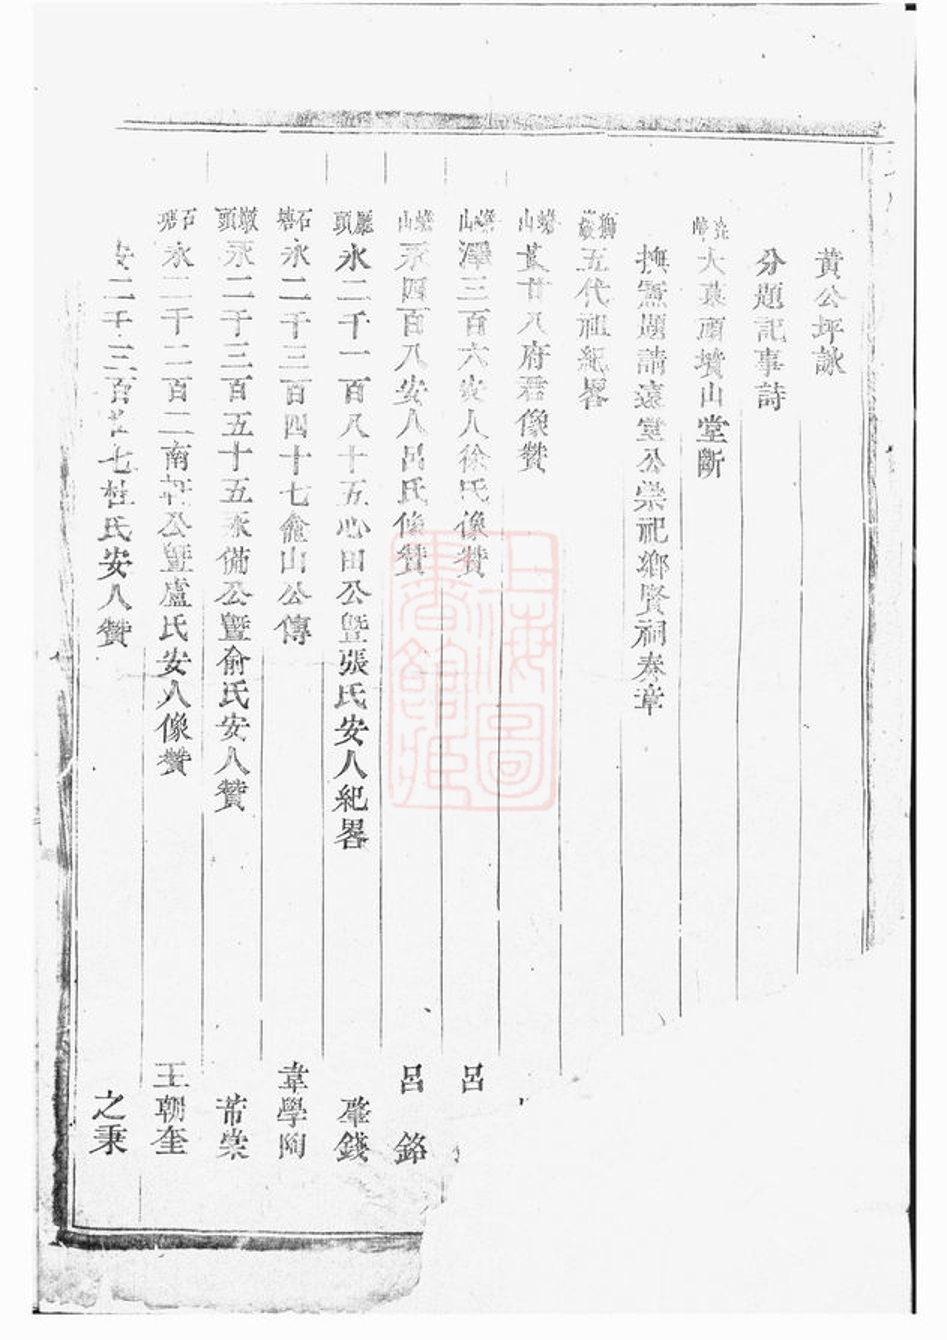 黃公坪詠
分題記事詩
大葉頭墳山堂斷
撫憲題請遠堂公崇祀鄉賢祠奏章
五代祖紀畧
廿八府君像贊
山 澤三百六安人徐氏像贊 呂
山 永四百八安人呂氏像贊 呂鉻
廳頭 永二千一百八十五心田公曁張氏安人紀畧 肇錢
石塘 永二千三百四十七龕山公傳 韋學陶
墩頭 永二千三百五十五永備公曁俞氏安人贊 芾棠
石塘 永二千二百二南軒公曁盧氏安人像贊 王朝奎
二千三百七杜氏安人贊 之秉
上海圖書館藏